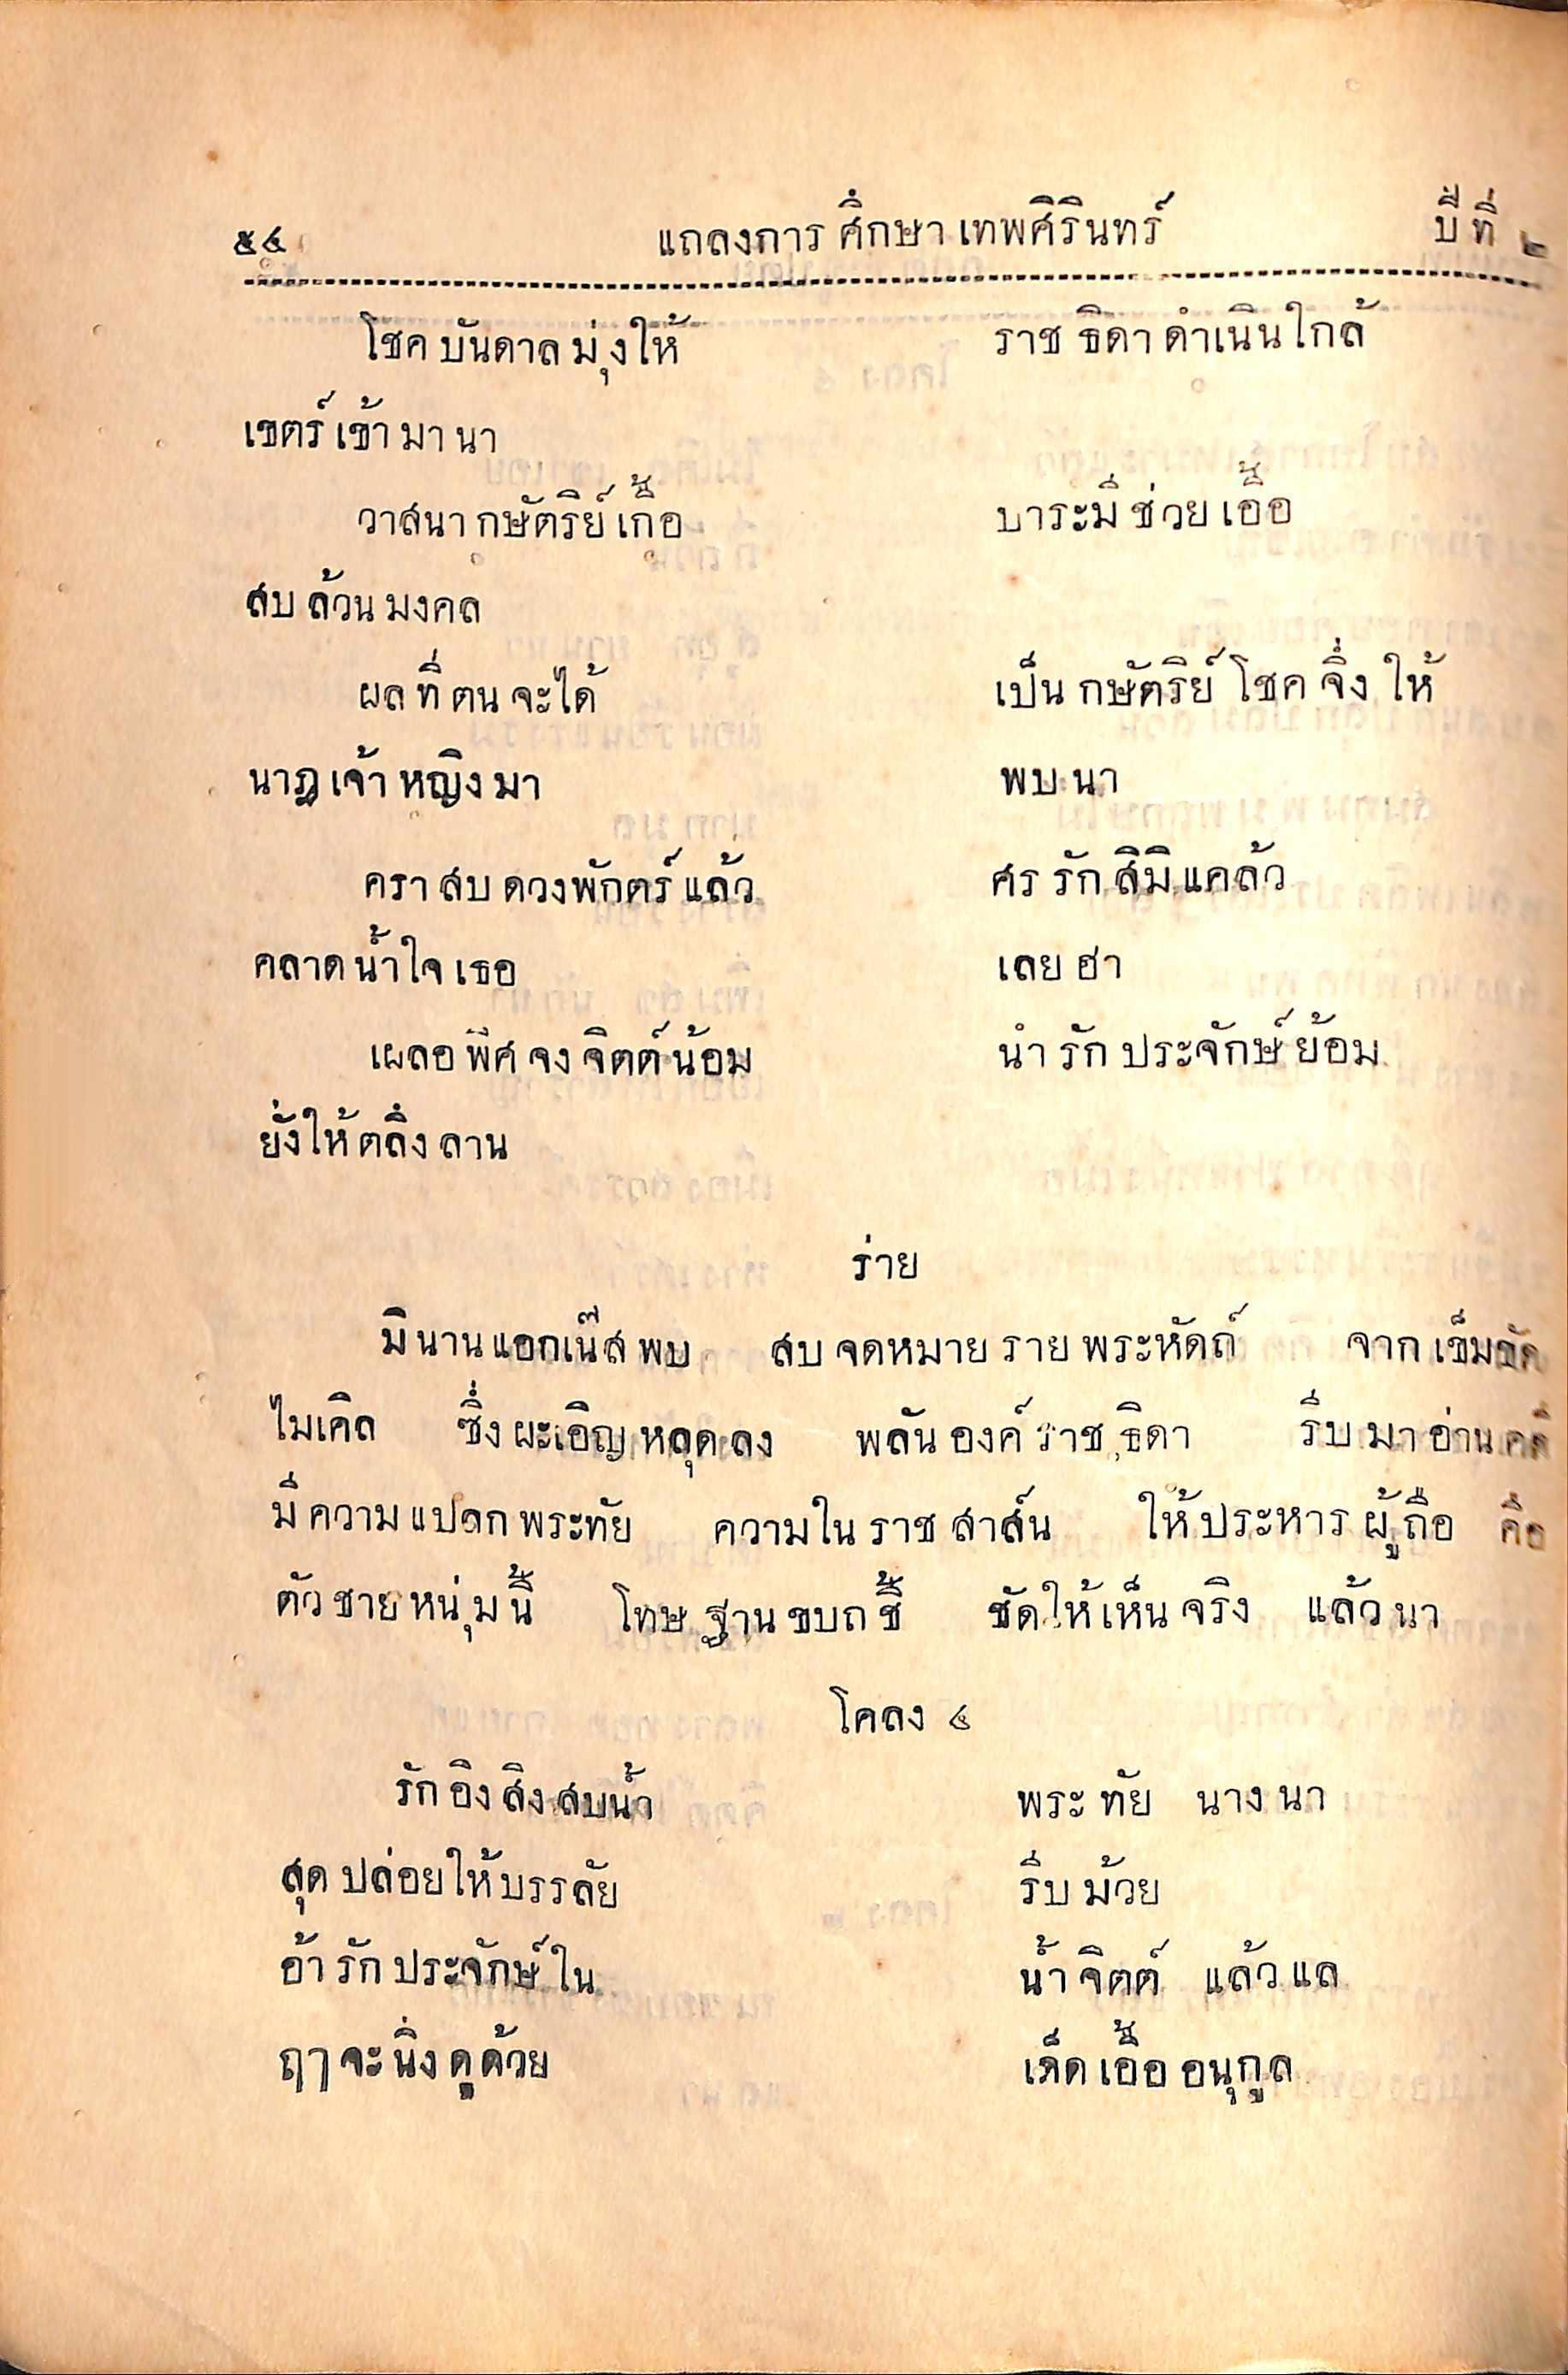 ๕๔ แถลงการศึกษาเทพศิรินทร์ ปีที่ ๒
โชคบันดาลมุ่งให้ ราชธิดาดำเนินใกล้
เขตร์เข้ามานา
วาสนากษัตริย์เกื้อ บาระมีช่วยเอื้อ
สบล้วนมงคล
ผลที่ตนจะได้ เป็นกษัตริย์โชคจึ่งให้
นาฏเจ้าหญิงมา พบนา
คราสบดวงพักตร์แล้ว ศรรักสิมิแคล้ว
คลาดน้ำใจเธอ เลยฮา
เผลอพิศจงจิตต์น้อม นำรักประจักษ์ย้อม
ยั่งให้ตลึงลาน
ร่าย
มินานแอกเน๊สพบ สบจดหมายรายพระหัดถ์ จากเข็มขัด
ไมเคิล ซึ่งผะเอิญหลุดลง พลันองค์ราชธิดา รีบมาอ่านคดี
มีความแปลกพระทัย ความในราชสาส์น ให้ประหารผู้ถือ คือ
ตัวชายหนุ่มนี้ โทษฐานขบถชี้ ชัดให้เห็นจริง แล้วนา
โคลง ๔
รักอิงสิงสบน้ำ พระทัย นางนา
สุดปล่อยให้บรรลัย รีบม้วย
อ้ารักประจักษ์ใน น้ำจิตต์ แล้วแล
ฤๅจะนิ่งดูด้วย เด็ดเอื้ออนุกูล